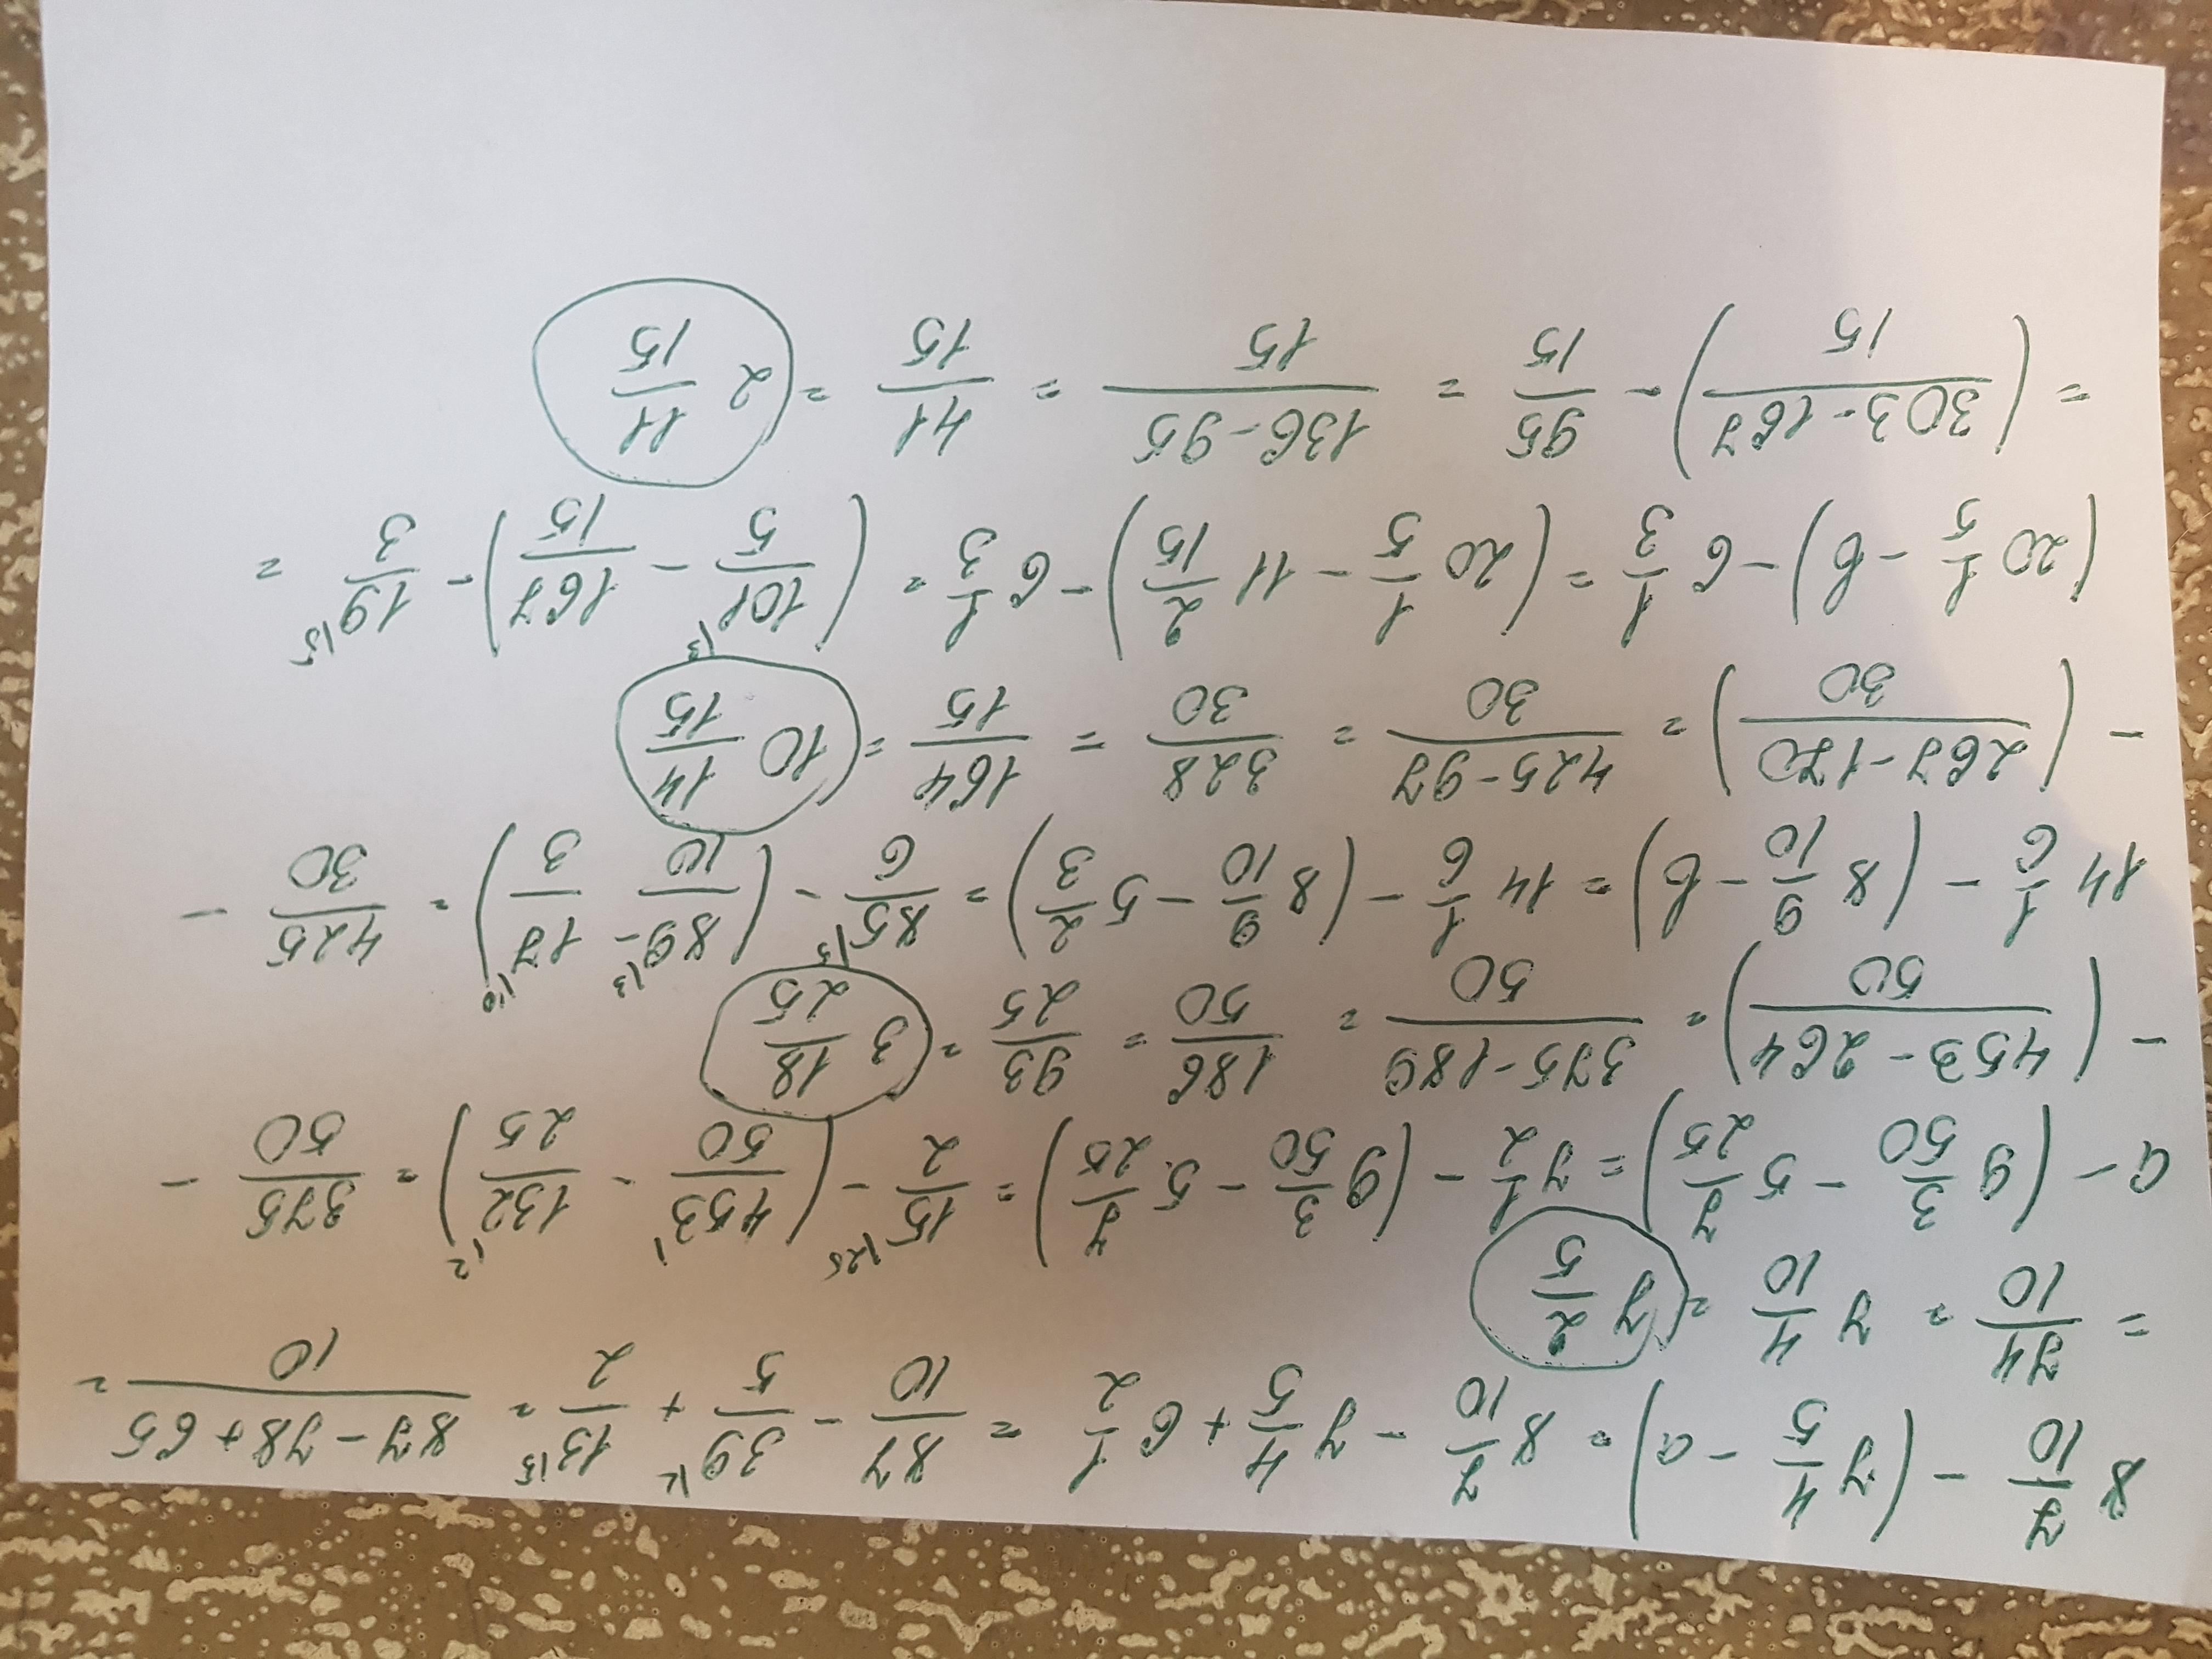 8 7/10 - (7 4/5 - a) = 8 7/10 - 7 4/5 + 6 1/2 = 87/10 - 39/5 |2 + 13/2 |5 = (87 - 78 + 65)/10 =
= 74/10 = 7 4/10 = 7 2/5
a - (9 3/50 - 5 7/25) = 7 1/2 - (9 3/50 - 5 7/25) = 15/2 |25 - (453/50 |1 - 132/25 |2) = 375/50 -
- ((453 - 264)/50) = (375 - 189)/50 = 186/50 = 93/25 = 3 18/25
14 1/6 - (8 9/10 - b) = 14 1/6 - (8 9/10 - 5 2/3) = 85/6 |5 - (89/10 |3 - 17/3 |10) = 425/30 -
- ((267 - 170)/30) = (425 - 97)/30 = 328/30 = 164/15 = 10 14/15
(20 1/5 - b) - 6 1/3 = (20 1/5 - 11 2/15) - 6 1/3 = (101/5 |3 - 167/15) - 19/3 |5 =
= ((303 - 167)/15) - 95/15 = (136 - 95)/15 = 41/15 = 2 11/15